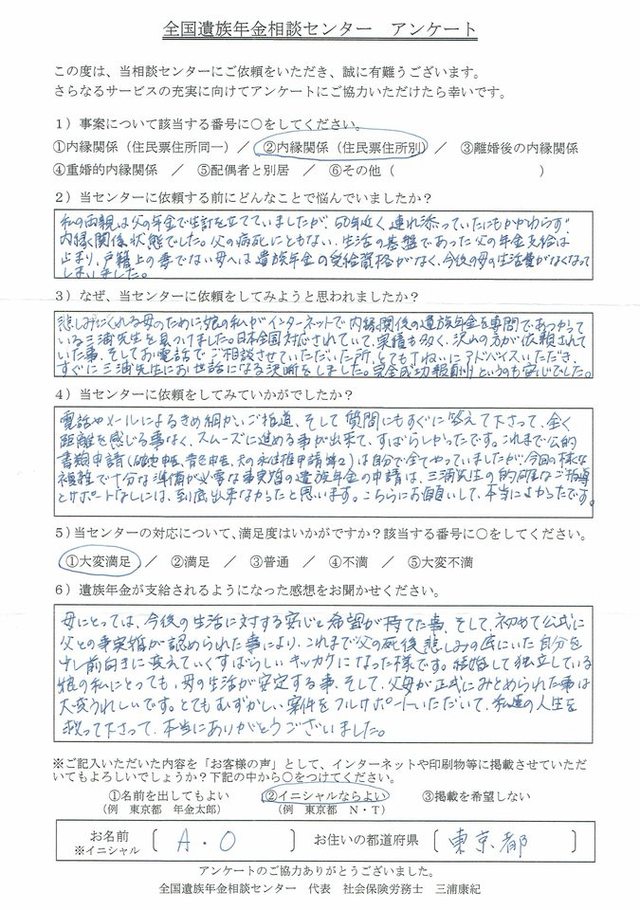 全国遺族年金相談センター　アンケート
この度は、当相談センターにご依頼をいただき、誠に有難うございます。
さらなるサービスの充実に向けてアンケートにご協力いただけたら幸いです。
1）事案について該当する番号に○をしてください。
①内縁関係（住民票住所同一）／②内縁関係（住民票住所別）／　③離婚後の内縁関係
④重婚的内縁関係　／　⑤配偶者と別居　／　⑥その他（　　　　　　　　　　）
2）当センターに依頼する前にどんなことで悩んでいましたか？
私の両親は父の年金で生計を立てていましたが、50年近く連れ添っていたにもかかわらず
内縁関係状態でした。父の病死にともない、生活の基盤であった父の年金支給は
止まり、戸籍上の妻でない母へは遺族年金の受給資格がなく、今後の母の生活費がなくなって
しまいました。
3）なぜ、当センターに依頼をしてみようと思われましたか？
悲しみにくれる母のために娘の私がインターネットで内縁関係の遺族年金を専門であつかって
いる三浦先生を見つけました。日本全国対応されていて、実績も多く、沢山の方が依頼されて
いた事、そしてお電話でご相談させていただいた所、とてもていねいにアドバイスいただき、
すぐに三浦先生にお世話になる決断をしました。完全成功報酬というのも安心でした。
4）当センターに依頼をしてみていかがでしたか？
電話やメールによるきめ細かいご指導、そして質問にもすぐに答えて下さって、全く
距離を感じる事なく、スムーズに進める事が出来て、すばらしかったです。これまで公的
書類申請（確定申告、青色申告、夫の永住権申請等々）は自分で全てやっていましたが、今回の様な
複雑で十分な準備が必要な事実婚の遺族年金の申請は、三浦先生の的確なご指導
とサポートなしには、到底出来なかったと思います。こちらにお願いして、本当によかったです。
5）当センターの対応について、満足度はいかがですか？該当する番号に○をしてください。
①大変満足　／　②満足　／　③普通　／　④不満　／　⑤大変不満
6）遺族年金が支給されるようになった感想をお聞かせください。
母にとっては、今後の生活に対する安心と希望が持てた事、そして、初めて公式に
父との事実婚が認められた事により、これまで父の死後悲しみの底にいた自分を
少し前向きに変えていくすばらしいキッカケになった様です。結婚して独立している
娘の私にとっても、母の生活が安定する事、そして、父母が正式にみとめられた事は
大変うれしいです。とてもむずかしい案件をフルサポートいただいて、私達の人生を
救って下さって、本当にありがとうございました。
※ご記入いただいた内容を「お客様の声」として、インターネットや印刷物等に掲載させていただ
いてもよろしいでしょうか？下記の中から○をつけてください。
①名前を出してもよい　　②イニシャルならよい　　③掲載を希望しない
（例　東京都　年金太郎）　　（例　東京都　N・T）
お名前　〔　A・O　〕　お住いの都道府県　〔　東京都　〕
※イニシャル
アンケートのご協力ありがとうございました。
全国遺族年金相談センター　代表　社会保険労務士　三浦康紀